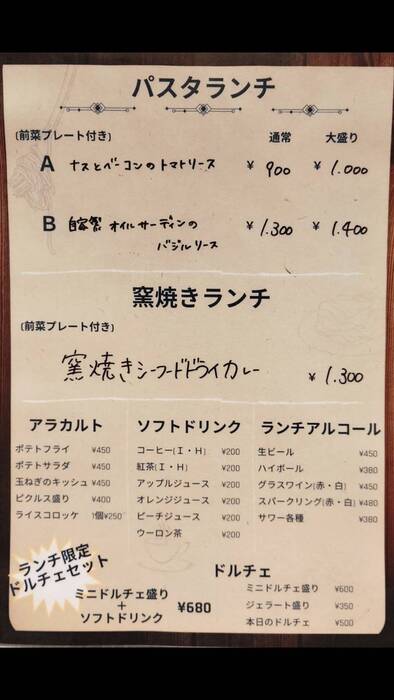 パスタランチ
(前菜プレート付き) 通常 大盛り
A ナスとベーコンのトマトソース ¥ 900 ¥ 1.000
B 自家製 オイルサーディンの ¥ 1.300 ¥ 1.400
バジルソース
窯焼きランチ
(前菜プレート付き)
窯焼きシーフードドライカレー ¥ 1.300
アラカルト
ポテトフライ ¥450
ポテトサラダ ¥450
玉ねぎのキッシュ ¥450
ピクルス盛り ¥400
ライスコロッケ 1個¥250
ソフトドリンク
コーヒー(I・H) ¥200
紅茶(I・H) ¥200
アップルジュース ¥200
オレンジジュース ¥200
ピーチジュース ¥200
ウーロン茶 ¥200
ランチアルコール
生ビール ¥450
ハイボール ¥380
グラスワイン(赤・白) ¥450
スパークリング(赤・白) ¥480
サワー各種 ¥380
ランチ限定
ドルチェセット
ミニドルチェ盛り
+
ソフトドリンク
¥680
ドルチェ
ミニドルチェ盛り ¥600
ジェラート盛り ¥350
本日のドルチェ ¥500